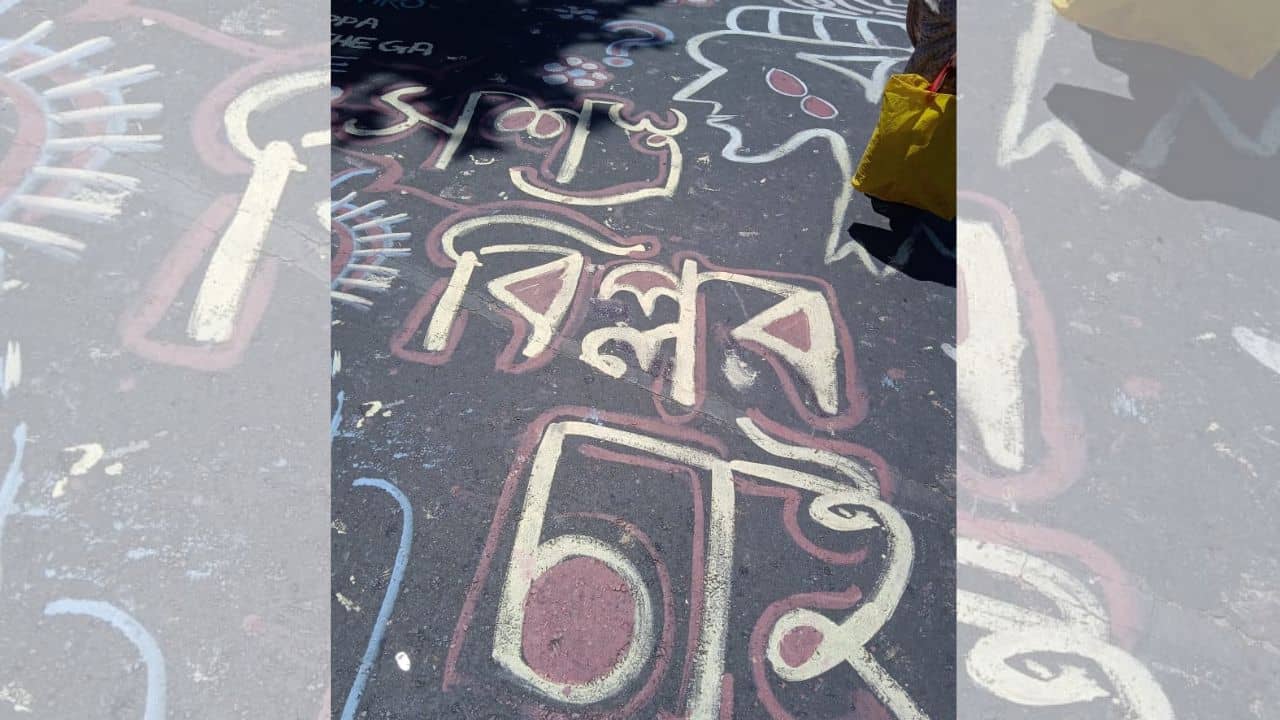 PPA
HE GA
সশস্ত্র
বিপ্লব
চাই